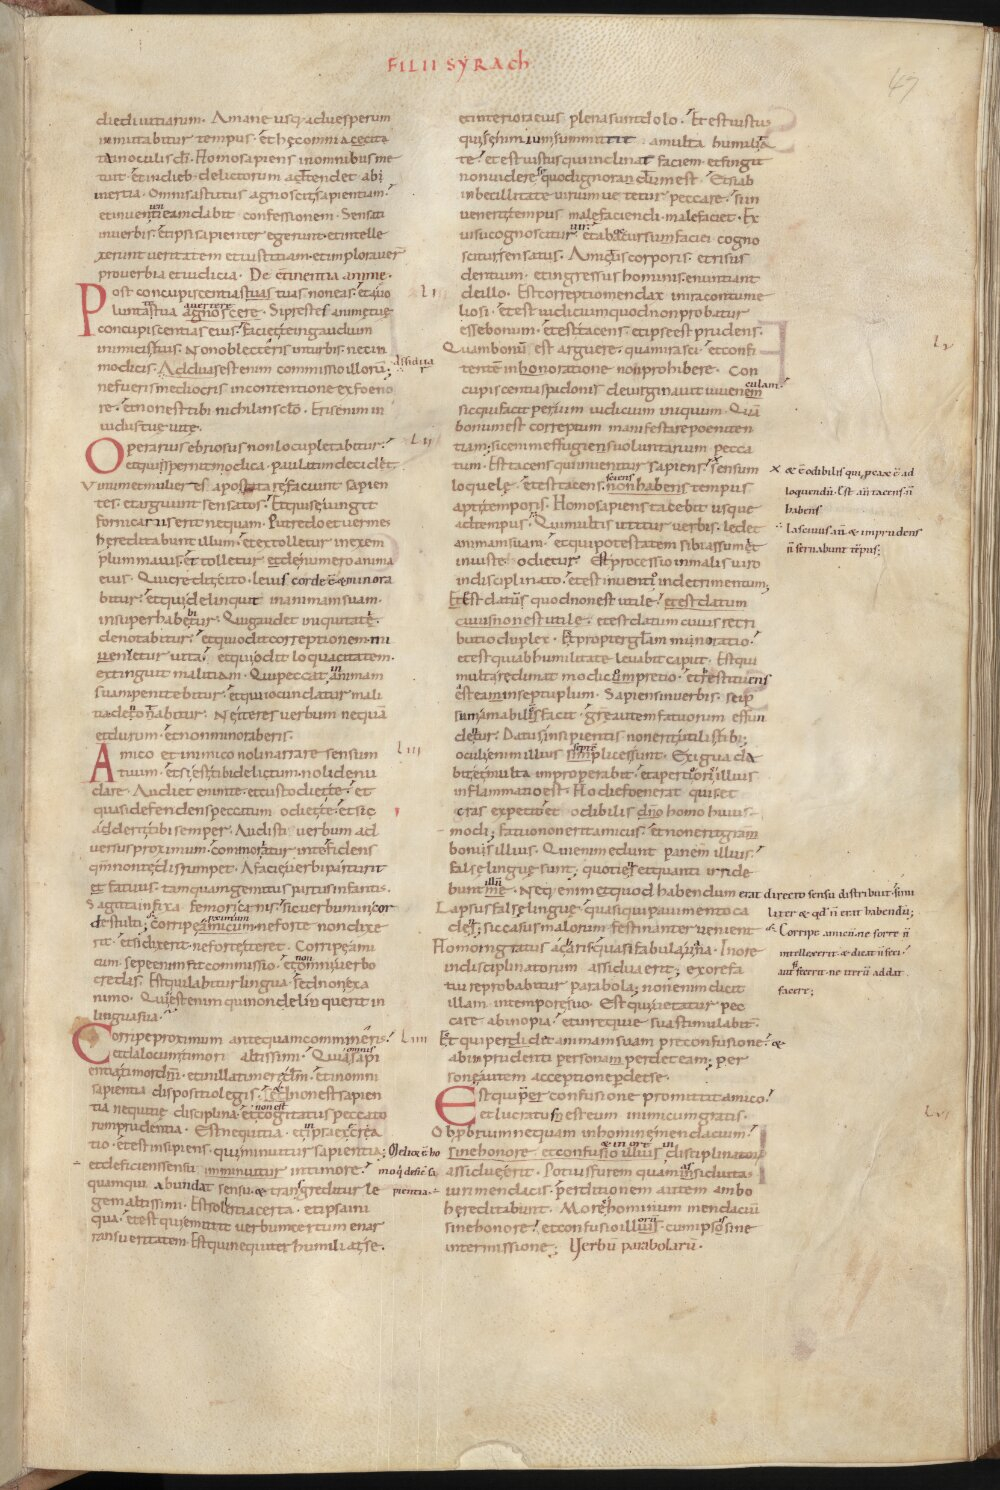 FILII SYRACH
47
die divitiarum. A mane usq; ad vesperum
inmutabitur tempus. et hęc omnia cecita
ta in oculis di. Homo sapiens in omnibus me
tuit. et in dieb; delictorum
inertia. Omnis astutus agnoscit sapientiam.
et invenienti eam dabit confessionem. Sensati
in verbis. et ipsi sapienter egerunt. et intelle
xerunt veritatem et iustitiam. et imploraver
proverbia et iudicia. De c̄tinentia anime.
Post concupiscentias tuas non eas. et a vo
luntate tua agnoscere. Si prestes anime tuę
concupiscentias eius. faciet te in gaudium
inimicis tuis. Ne oblecteris in turbis. nec in
modicis. Assidua est enim commissio illorum;
ne fueris mediocris in contentione ex foeno
re. et non est tibi nichil in sclo. Eris enim in
vidus tuę vite.
LI
Operarius ebriosus non locupletabitur.
et qui spernit modica. paulatim decidet.
LII
Vinum et mulieres apostatare faciunt sapien
tes. et arguunt sensatos. Et qui se iungit
fornicariis erit nequam. Putredo et vermes
hereditabunt illum. et extolletur in exem
plum maius. et tolletur de numero anima
eius. Qui credit cito. levis corde ē & minora
bitur. et qui delinquit in animam suam.
insuper habebitur. Qui gaudet iniquitate.
denotabitur. et qui odit correptionem mi
nuetur vita. et qui odit loquacitatem.
extinguit malitiam. Qui peccat in animam
suam penitebitur. et qui iocundatur mali
tia denotabitur. Ne iteres verbum nequā
et durum. et non minoraberis.
Amico et inimico noli narrare sensum
LIII
tuum. et si est tibi delictum. noli denu
dare. Audiet enim te. et custodiet te. et
quasi defendens peccatum odiet te. et sic
aderit tibi semper. Audisti verbum ad
versus proximum. commoriatur in te. fidens
qm̄ non te disrumpet. A facie verbi parturit
et fatuus. tamquam gemitus partus infantis.
Sagitta infixa femori carnis. sic verbum in cor
de stulti; Corripe amicum. ne forte non dixe
rit. et si dixerit. ne forte iteret. Corripe ami
cum. sepe enim fit commissio. et non omni verbo
credas. Est qui labitur lingua. sed non ex a
nimo. Quis est enim qui non delinquerit in
lingua sua.
Corripe proximum antequam commineris.
LIIII
et da locum timori altissimi. Quia omnis sapi
entia timor dn̄i. et in illa timere dm̄. et in omni
sapientia dispositio legis. et non est sapien
tia nequitię disciplina. et non est cogitatus peccato
rum prudentia. Est nequitia. et in ipsa execra
tio. et est insipiens. qui minuitur sapientia;
et deficiens sensu. minuitur in timore.
quamqui abundat sensu. & transgreditur le
gem altissimi. Est sollertia certa. et ipsa ini
qua. et est qui emittit verbum certum enar
rans veritatem. Est qui nequiter humiliat se.
et interiora eius plena sunt dolo. Et est iustus
qui se nimium summittit a multa humilita
te. et est iustus qui inclinat faciem. et fingit
non videre quod ignoratum est. Et si ab
inbecillitate virium vetetur peccare. si in
venerit tempus malefaciendi. malefaciet. Ex
visu cognoscitur vir. et ab occursu faciei cogno
scitur sensatus. Amictus corporis. et risus
dentium. et ingressus hominis. enuntiant
de illo. Est correptio mendax in ira contume
liosi. et est iudicium quod non probatur
esse bonum. et est tacens. et ipse est prudens.
Quam bonū est arguere. quam irasci. et confi
LV
tentem in honoratione non prohibere. Con
cupiscentia spadonis devirginavit iuvenculam.
sic qui facit per vim iudicium iniquum. Quā
bonum est correptum manifestare poeniten
tiam. sic enim effugiens voluntarium pecca
tum. Est tacens qui invenitur sapiens. sensum
loquele. et est tacens. sciens tempus
apti temporis. Homo sapiens tacebit usque
ad tempus. Qui multis utitur verbis. ledet
animam suam. et qui potestatem sibi assumet
iniuste. odietur. Est processio in malis viro
indisciplinato. et est inventio in detrimentum;
Est datus quod non est utile. et est datum
cuius non est utile. et est datum cuius retri
butio duplex. Est propter glam minoratio.
et est qui ab humilitate levabit caput. Est qui
multa redimat modico pretio. et restituens
ea in septuplum. Sapiens in verbis. seip
sum amabilem facit. gratię autem fatuorum effun
detur. Datus insipientis non erit utilis tibi.
oculi enim illius septē plices sunt. Exigua da
bit. et multa improperabit. et apertio oris illius
inflammatio est. Hodie foenerat quis. et
cras expetit. et odibilis dn̄o homo huius
modi; fatuo non erit amicus. et non erit gratia
bonis illius. Qui enim edunt panem illius.
false lingue sunt; quotiens et quanti irride
bunt eum. Neq; enim et quod habendum erat directo sensu distribuit. simi
liter & qd n̄ erat habendū;
Lapsus false lingue. quasi qui pavimento ca
dens; sic casus malorum festinanter venient
Homo ingratus acharis quasi fabula vana. In ore
indisciplinatorum assidua erit; ex ore fa
tui reprobabitur parabola; non enim dicit
illam in tempore suo. Est qui vetatur pec
care ab inopia. et in requie sua stimulabit.
Est qui perdit animam suam pre confusione. &
ab inprudenti persona perdet eam; per
sonę autem acceptione perdet se.
Est qui per confusione promittit amico.
LVI
et lucratus est eum inimicum gratis.
Obprbrium nequam in homine mendacium.
sine honore et confusio illius disciplinator
assidue erit. Potius fur quam assiduita
iuri mendacis. perditionem autem ambo
hereditabunt. Mores hominum mendaciū
sine honore. et confusio illorū. cum ipsos sine
intermissione; Verbū parabolarū.
Assidua
Melior ē ho
mo q defic̄ sa
pientia
& ē odibilis qui p̄cax ē ad
loquendū. Est aū tacens n̄
habens
Lascivus aū & imprudens
n̄ servabunt tēpus;
Corripe amicū. ne forte n̄
intellexerit. & dicat n̄ feci.
aut si fecerit. ne iterū addat
facere;